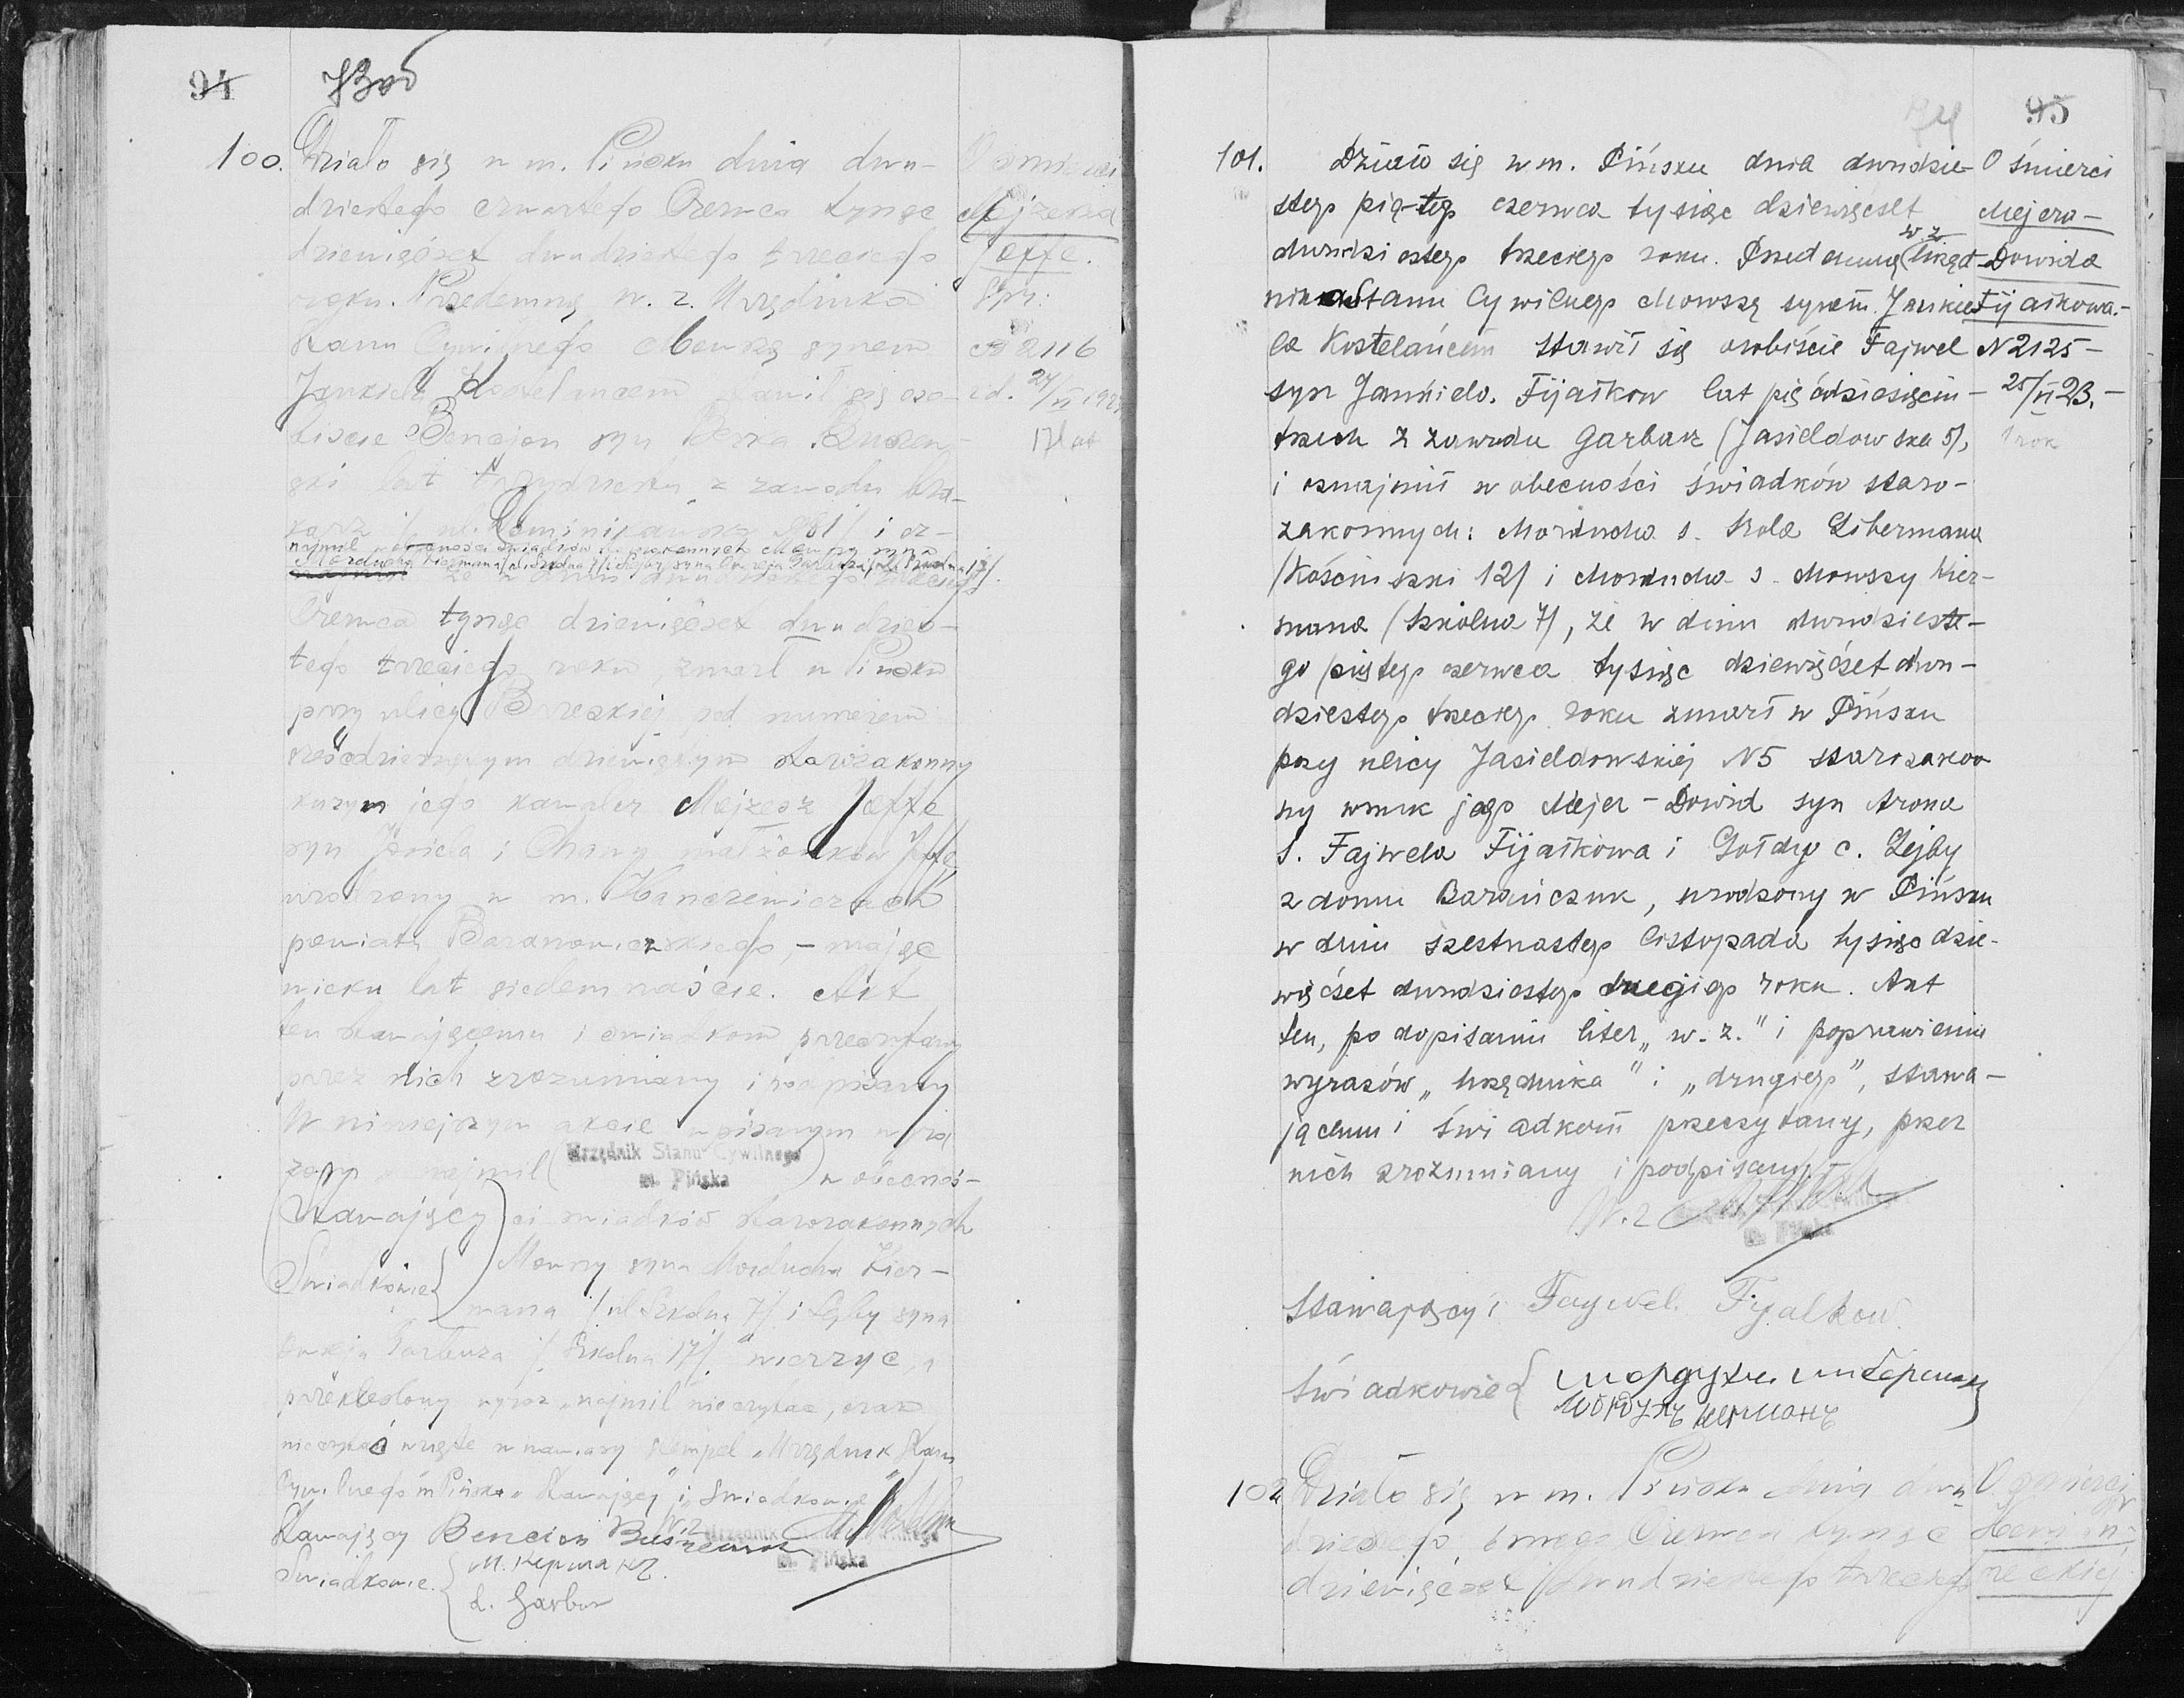 94
100.
Działo się w m. Pińsku dnia dwu-
dziestego czwartego Czerwca tysiąc
dziewięćset dwudziestego trzeciego
roku. Przedemną w. z. Urzędnika
Stanu Cywilnego Mowszą synem
Jankiela Kostelańcem stawił się oso-
biście Bencjon syn Berka
lat trzydziestu z zawodu
i oz-
najmił w obecności świadków starozakonnych Mowszy syna
Morducha Kiermana
Czerwca tysiąc dziewięćset dwudzies-
tego trzeciego roku, zmarł w Pińsku
przy ulicy Brzeskiej pod numerem
sześćdziesiątym dziewiątym starozakonny
kuzyn jego kawaler Mejżesz Joffe
syn Josiela i Chany małżonków Joffe
urodzony w m. Hancewiczach
powiatu Baranowickiego, – mając
wieku lat siedemnaście. Akt
ten stawającemu i świadkom przeczytany
przez nich zrozumiany i podpisany
W niniejszym akcie wpisanym wyra
zem najmił ( Urzędnik Stanu Cywilnego
m. Pińska ) w obecnoś-
Stawający ) ci świadków starozakonnych
Świadkowie Mowszy syna Morducha Kier-
mana /ul Szkolna 7/ i Lejby syna
Garbuza / Szkolna 17/ wierzyć, a
przekreślony wyraz „najmił nieczytać, oraz
nieczytać wzięte w nawiasy stempel „Urzędnik Stanu
Cywilnego m Pińska „Stawający" i „Świadkowie"
Stawający Bencion
Świadkowie. М. Керман
L. Garbuz
O śmierci
Mejżesza
Joffe.
№ 2116
z d. 24/VI 1923
17 lat
74
95
101.
Działo się w m. Pińsku dnia dwudzie-
stego piątego czerwca tysiąc dziewięćset
w z
dwudziestego trzeciego roku. Przedemną (Urzęd-
nika Stanu Cywilnego Mowszą synem Jankie-
la Kostelańcem stawił się osobiście Fajwel
syn Jankiela. Fijałkow lat pięćdziesięciu-
trzech z zawodu garbarz (Jasieldowska 5),
i oznajmił w obecności świadków staro-
zakonnych: Morducha s. Srola Libermana
/Kościuszki 12/ i Morducha s. Mowszy Kier-
mana (Szkolna 7/, że w dniu dwudzieste-
go piątego czerwca tysiąc dziewięćset dwu-
dziestego trzeciego roku zmarł w Pińsku
przy ulicy Jasieldowskiej N5 starozakon
ny wnuk jego Mejer-Dowid syn Arona
s. Fajwela Fijałkowa i Gołdy c. Lejby
z domu Barańczuk, urodzony w Pińsku
w dniu szesnastego listopada tysiąc dzie-
więćset dwudziestego drugiego roku. Akt
ten, po dopisaniu liter „w. z." i poprawieniu
wyrazów „Urzędnika" i „drugiego", stawa-
jącemu i świadkom przeczytany, przez
nich zrozumiany i podpisany.
W. z
m. Pińska
Stawający: Faywel. Fijalkow.
Świadkowie { Мордух. Либерман
Мордухъ Керманъ
O śmierci
Mejera-
Dowida
Fijałkowa.-
N 2125 –
25/VI 23. –
1 rok
102
Działo się w m. Pińsku dnia dwu
dziestego Czerwca tysiąc
dziewięćset dwudziestego trzeciego
O śmierci